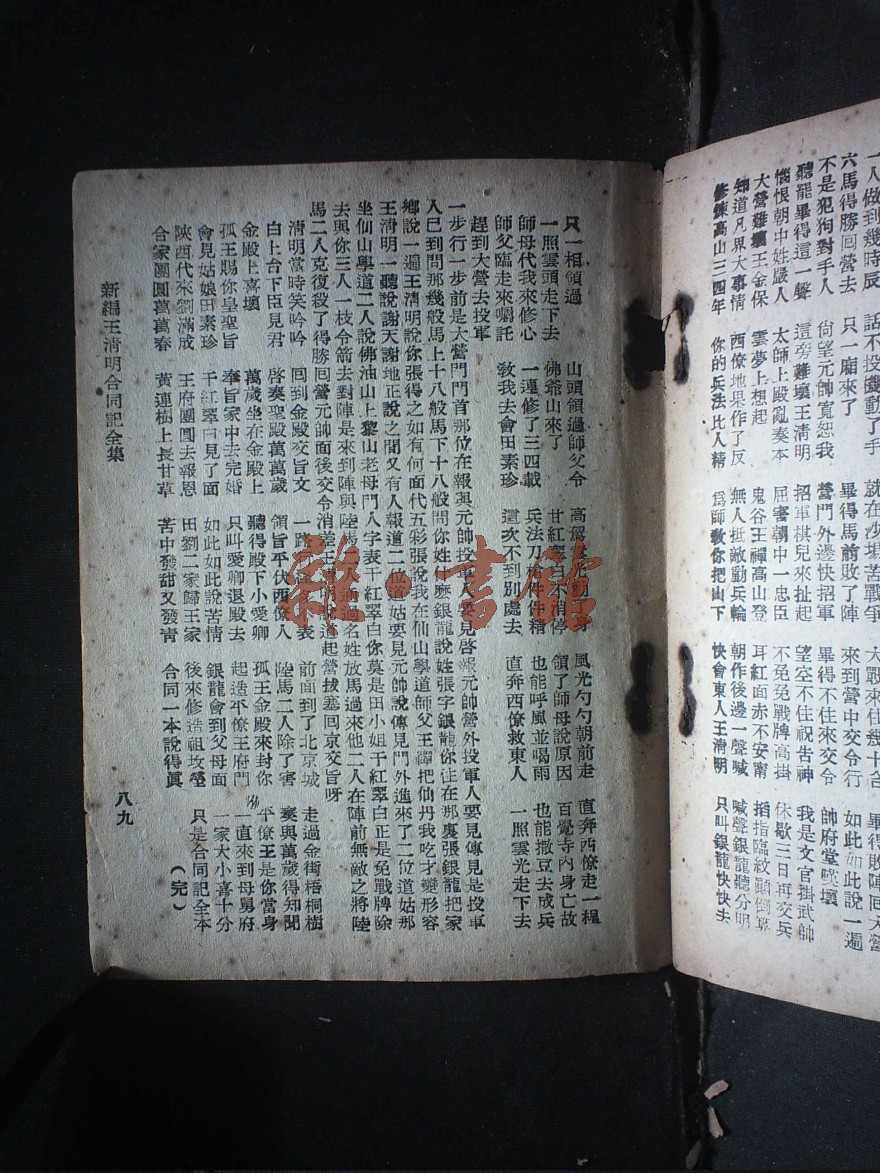 一人做到幾時辰　話不投機動了手
六馬得勝回營去　只一廟來了
不是犯狗對手人　尙望元帥寬恕我　畢得馬前敗了陣
聽罷畢得這一聲　這旁難壞王清明　營門外邊快招軍　畢得不住來交令　如此如此說一遍
惱恨朝中姓嚴人　太師上殿亂奏本　招軍棋兒來扯起　望空不住祝告神　帥府堂嘆壞
大營難壞王金保　雲夢上想起　屈害朝中一忠臣　不免免戰牌高掛　我是文官掛武帥
知道凡界大事情　西僚地界作了反　鬼谷王禪高山登　耳紅面赤不安甯　休歇三日再交兵
修煉高山三四年　你的兵法比人精　無人抵敵動兵輪　朝作後邊一聲喊
爲師教你把山下　快會東人王清明　喊聲銀龍聽分明
只叫銀龍快快去
只一相領過　山頭領過師父令　風光勺勺朝前走　直奔西僚走一程
一照雲頭走下去　佛爺山來了　領了師母說原因　百覺寺內身亡故
師母代我來修心　一連修了三四載　兵法刀槍件件精　也能呼風並喝雨　也能撒豆去成兵
師父臨走來囑託　教我去會田素珍　這次不到別處去　直奔西僚救東人　一照雲光走下去
趕到大營去投軍
一步行一步前是大營門門首那位在報與元帥投軍人要見啓報元帥營外投軍人要見傳見是投軍
人已到問那幾般馬上十八般馬下十八般問你姓什麽銀龍說姓張字銀龍你住在那裏張銀龍把家
鄉說一遍王清明說你張得之如有何面代五彩張說我在仙山學道師父王禪把仙丹我吃才變形容
王清明一聽說謝天謝地正說之間又有人報道二位道姑要見元帥說傳見門外進來了二位道姑那
坐仙山學道二人說佛油山上黎山老母門人字表干紅翠白你莫是田小姐干紅翠白正是免戰牌除
去與你三人一枝令箭去對陣是來到陣與陸馬通過名姓放馬過來他二人在陣前無敵之將陸
馬二人克復殺了得勝回營元帥面後交令消差王清明說道起營拔塞回京交旨呀
清明當時笑吟吟　回到金殿交旨文　一路　表　前面到了北京城　走過金街梧桐樹
白上台下臣見君　啓奏聖明萬萬歲　領旨平伏西僚人　陸馬二人除了害　奏與萬歲得知聞
金殿上喜壞　萬歲坐在金殿上　聽得殿下小愛卿　孤王金殿來封你　平僚王是你當身
孤王賜你皇聖旨　奉旨家中去完婚　只叫愛卿退殿去　起造平僚王府門　一直來到母舅府
會見姑娘田素珍　干紅翠白見了面　如此如此說苦情　銀龍會到父母面　一家大小喜十分
陝西代來劉滿成　王府團圓去報恩　田劉二家歸王家　後來修造祖坟塋　只是合同記全本
合家團圓萬萬春　黃連樹上長甘草　苦中發甜又發青　合同一本說得眞　(完)
新編王清明合同記全集
八九
雜·書館